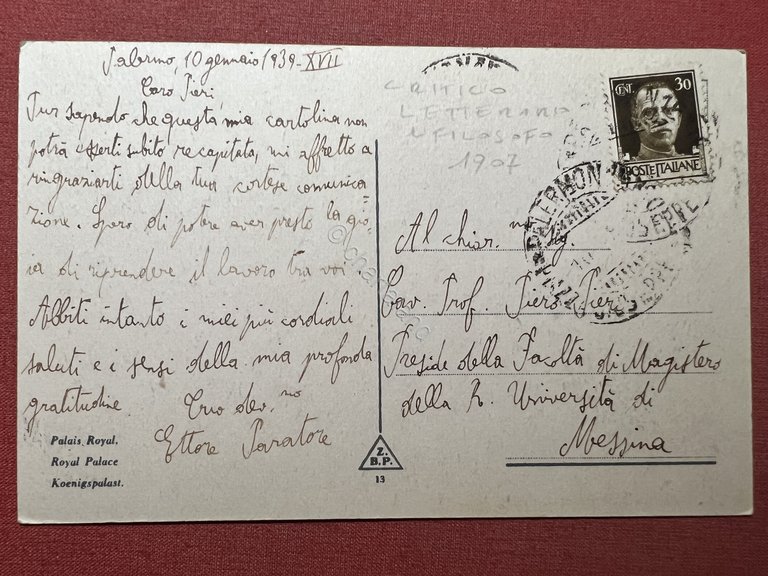 Palermo, 10 gennaio 1939-XVII
Caro Pieri,
Pur sapendo che questa mia cartolina non
potrà esserti subito recapitata, mi affretto a
ringraziarti della tua cortese comunica-
zione. Spero di potere aver presto la gio-
ia di riprendere il lavoro tra voi
Abbiti intanto i miei più cordiali
saluti e i sensi della mia profonda
gratitudine Tuo dev.mo
Ettore Paratore
Palais Royal.
Royal Palace
Koenigspalast.
Z.
B.P.
13
CRITICO
LETTERARIO
FILOSOFO
1907
CENT. 30
POSTE ITALIANE
PALERMO
Al chiar.mo Sig.
Cav. Prof. Piero Pieri
Preside della Facoltà di Magistero
della R. Università di
Messina